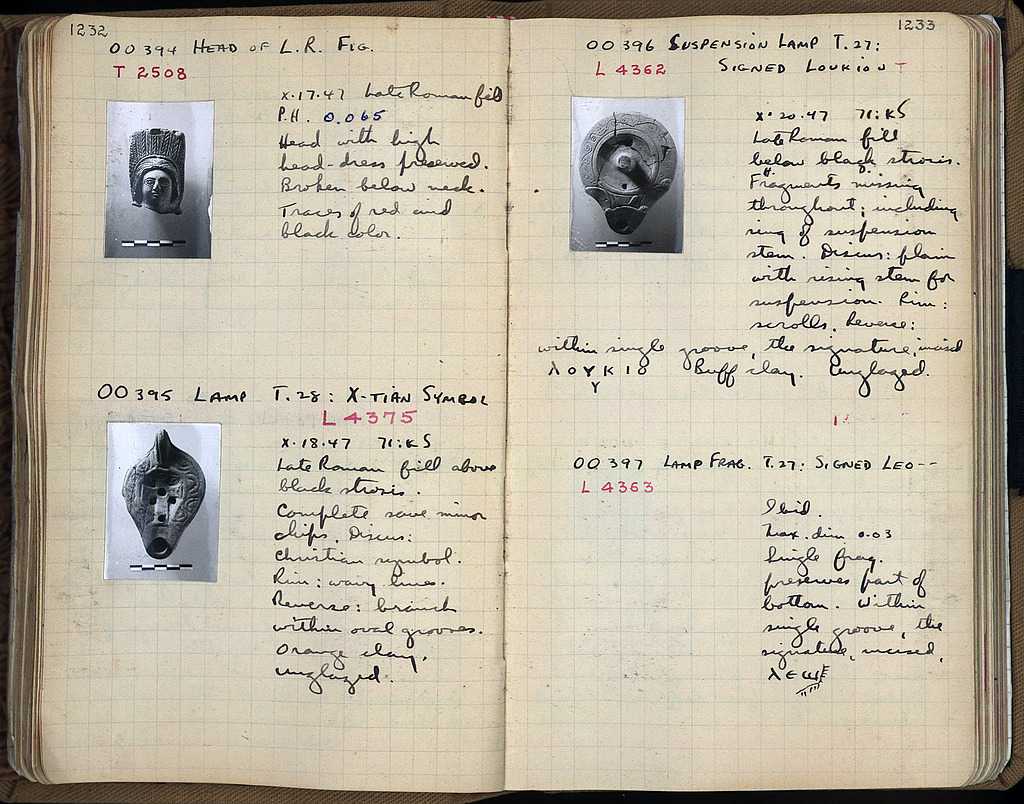 1232
OO 394 HEAD OF L.R. FIG.
T 2508
X.17.47 Late Roman fill
P.H. 0.065
Head with high
head-dress preserved.
Broken below neck.
Traces of red and
black color.
OO 395 LAMP T.28: X-TIAN SYMBOL
L 4375
X.18.47 71:KS
Late Roman fill above
black strosis.
Complete save minor
chips. Discus:
Christian symbol.
Rim: wavy lines.
Reverse: branch
within oval grooves.
Orange clay.
Unglazed.
1233
OO 396 SUSPENSION LAMP T.27:
L 4362 SIGNED LOUKIOU
X.20.47 71:KS
Late Roman fill
below black strosis.
Fragments missing
throughout; including
ring of suspension
stem. Discus: plain
with rising stem for
suspension. Rim:
scrolls. Reverse:
within single groove, the signature, incised
ΛΟΥΚΙΟ Buff clay. Unglazed.
Υ
OO 397 LAMP FRAG. T.27: SIGNED LEO--
L 4363
Ibid.
Max. dim 0.03
Single frag.
preserves part of
bottom. Within
single groove, the
signature, incised,
λεω